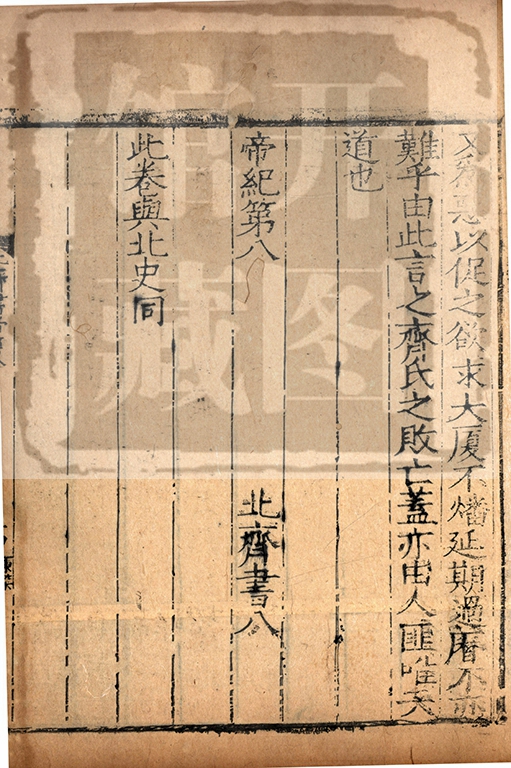 又爲惡以促之欲求大厦不燔延期過曆不亦
難乎由此言之齊氏之敗亡蓋亦由人匪唯天
道也
帝紀第八 北齊書八
此卷與北史同
开
图
馆
藏